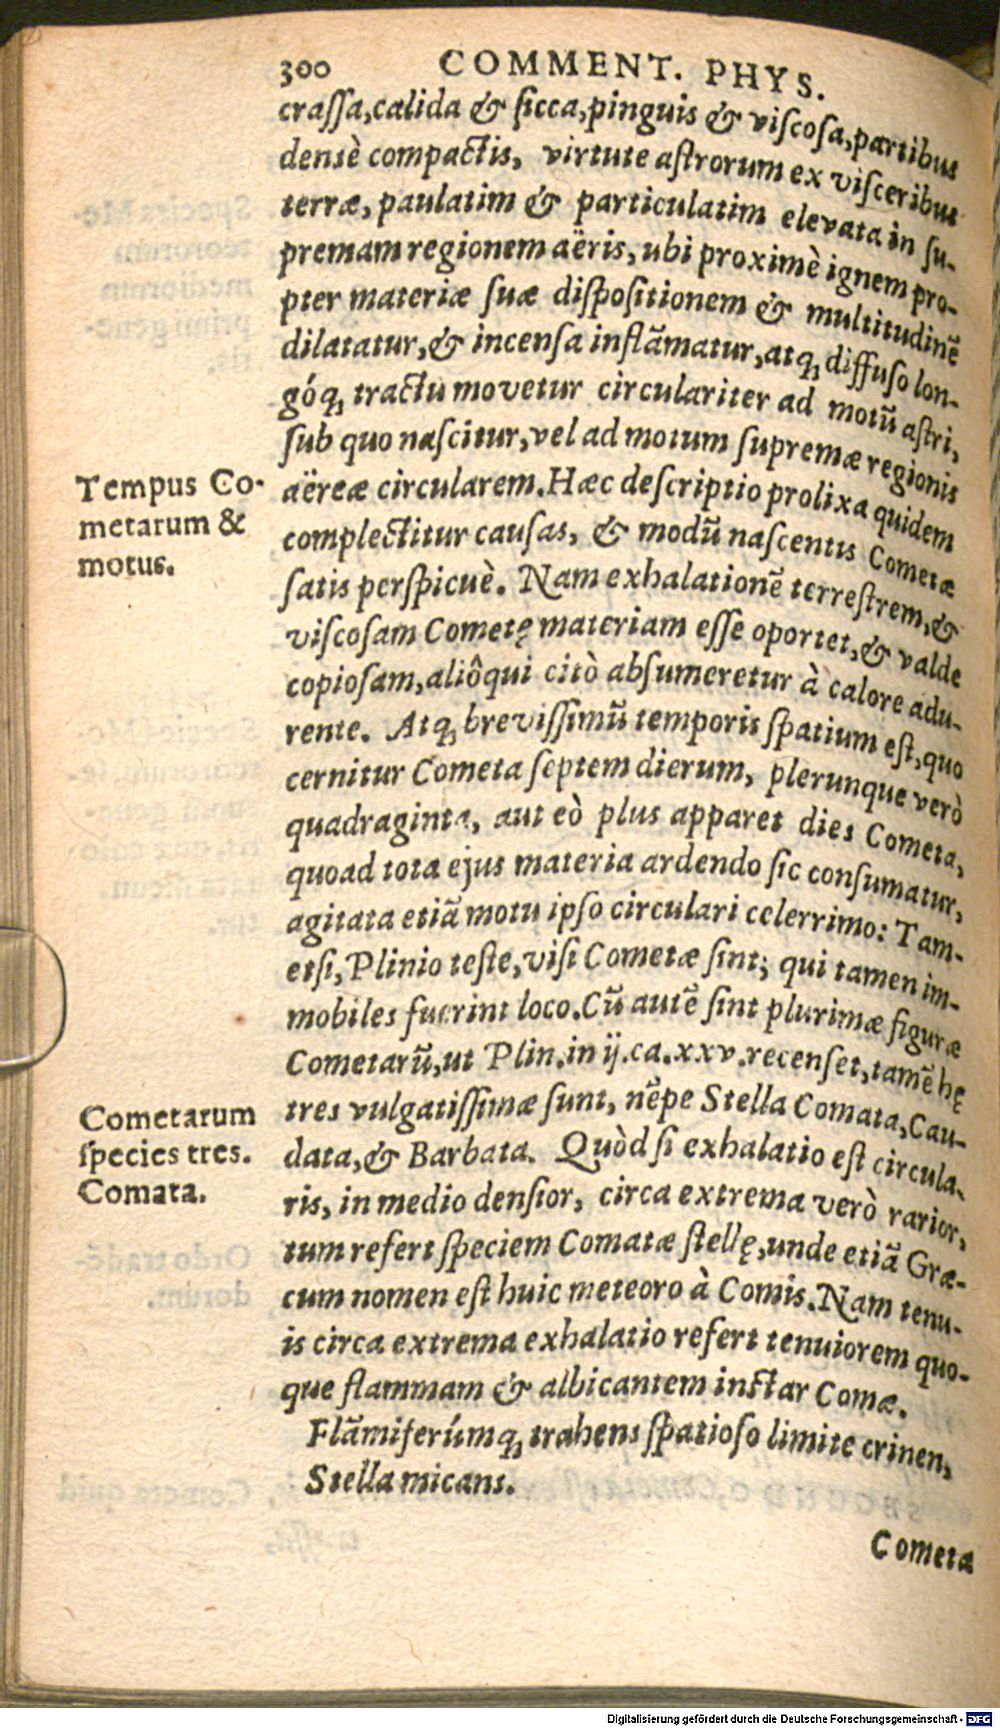 300 COMMENT. PHYS.
crassa, calida & sicca, pinguis & viscosa, partibus
densè compactis, virtute astrorum ex visceribus
terræ, paulatim & particulatim elevata in su-
premam regionem aëris, ubi proximè ignem pro-
pter materiæ suæ dispositionem & multitudinẽ
dilatatur, & incensa inflãmatur, atq; diffuso lon-
góq; tractu movetur circulariter ad motũ astri,
sub quo nascitur, vel ad motum supremæ regionis
Tempus Co-
metarum &
motus.
aëreæ circularem. Hæc descriptio prolixa quidem
complectitur causas, & modũ nascentis Cometæ
satis perspicuè. Nam exhalationẽ terrestrem, &
viscosam Cometę materiam esse oportet, & valde
copiosam, aliôqui citò absumeretur à calore adu-
rente. Atq; brevissimũ temporis spatium est, quo
cernitur Cometa septem dierum, plerunque verò
quadraginta, aut eò plus apparet dies Cometa,
quoad tota ejus materia ardendo sic consumatur,
agitata etiã motu ipso circulari celerrimo: Tam-
etsi, Plinio teste, visi Cometæ sint; qui tamen im-
mobiles fuerint loco. Cũ autẽ sint plurimæ figuræ
Cometarũ, ut Plin. in ij. ca. xxv. recenset, tamẽ hę
Cometarum
species tres.
Comata.
tres vulgatissimæ sunt, nẽpe Stella Comata, Cau-
data, & Barbata. Quòd si exhalatio est circula-
ris, in medio densior, circa extrema verò rarior,
tum refert speciem Comatæ stellę, unde etiã Græ-
cum nomen est huic meteoro à Comis. Nam tenu-
is circa extrema exhalatio refert tenuiorem quo-
que flammam & albicantem instar Comæ.
Flãmiferúmq; trahens spatioso limite crinen,
Stella micans.
Cometa
Digitalisierung gefördert durch die Deutsche Forschungsgemeinschaft - DFG